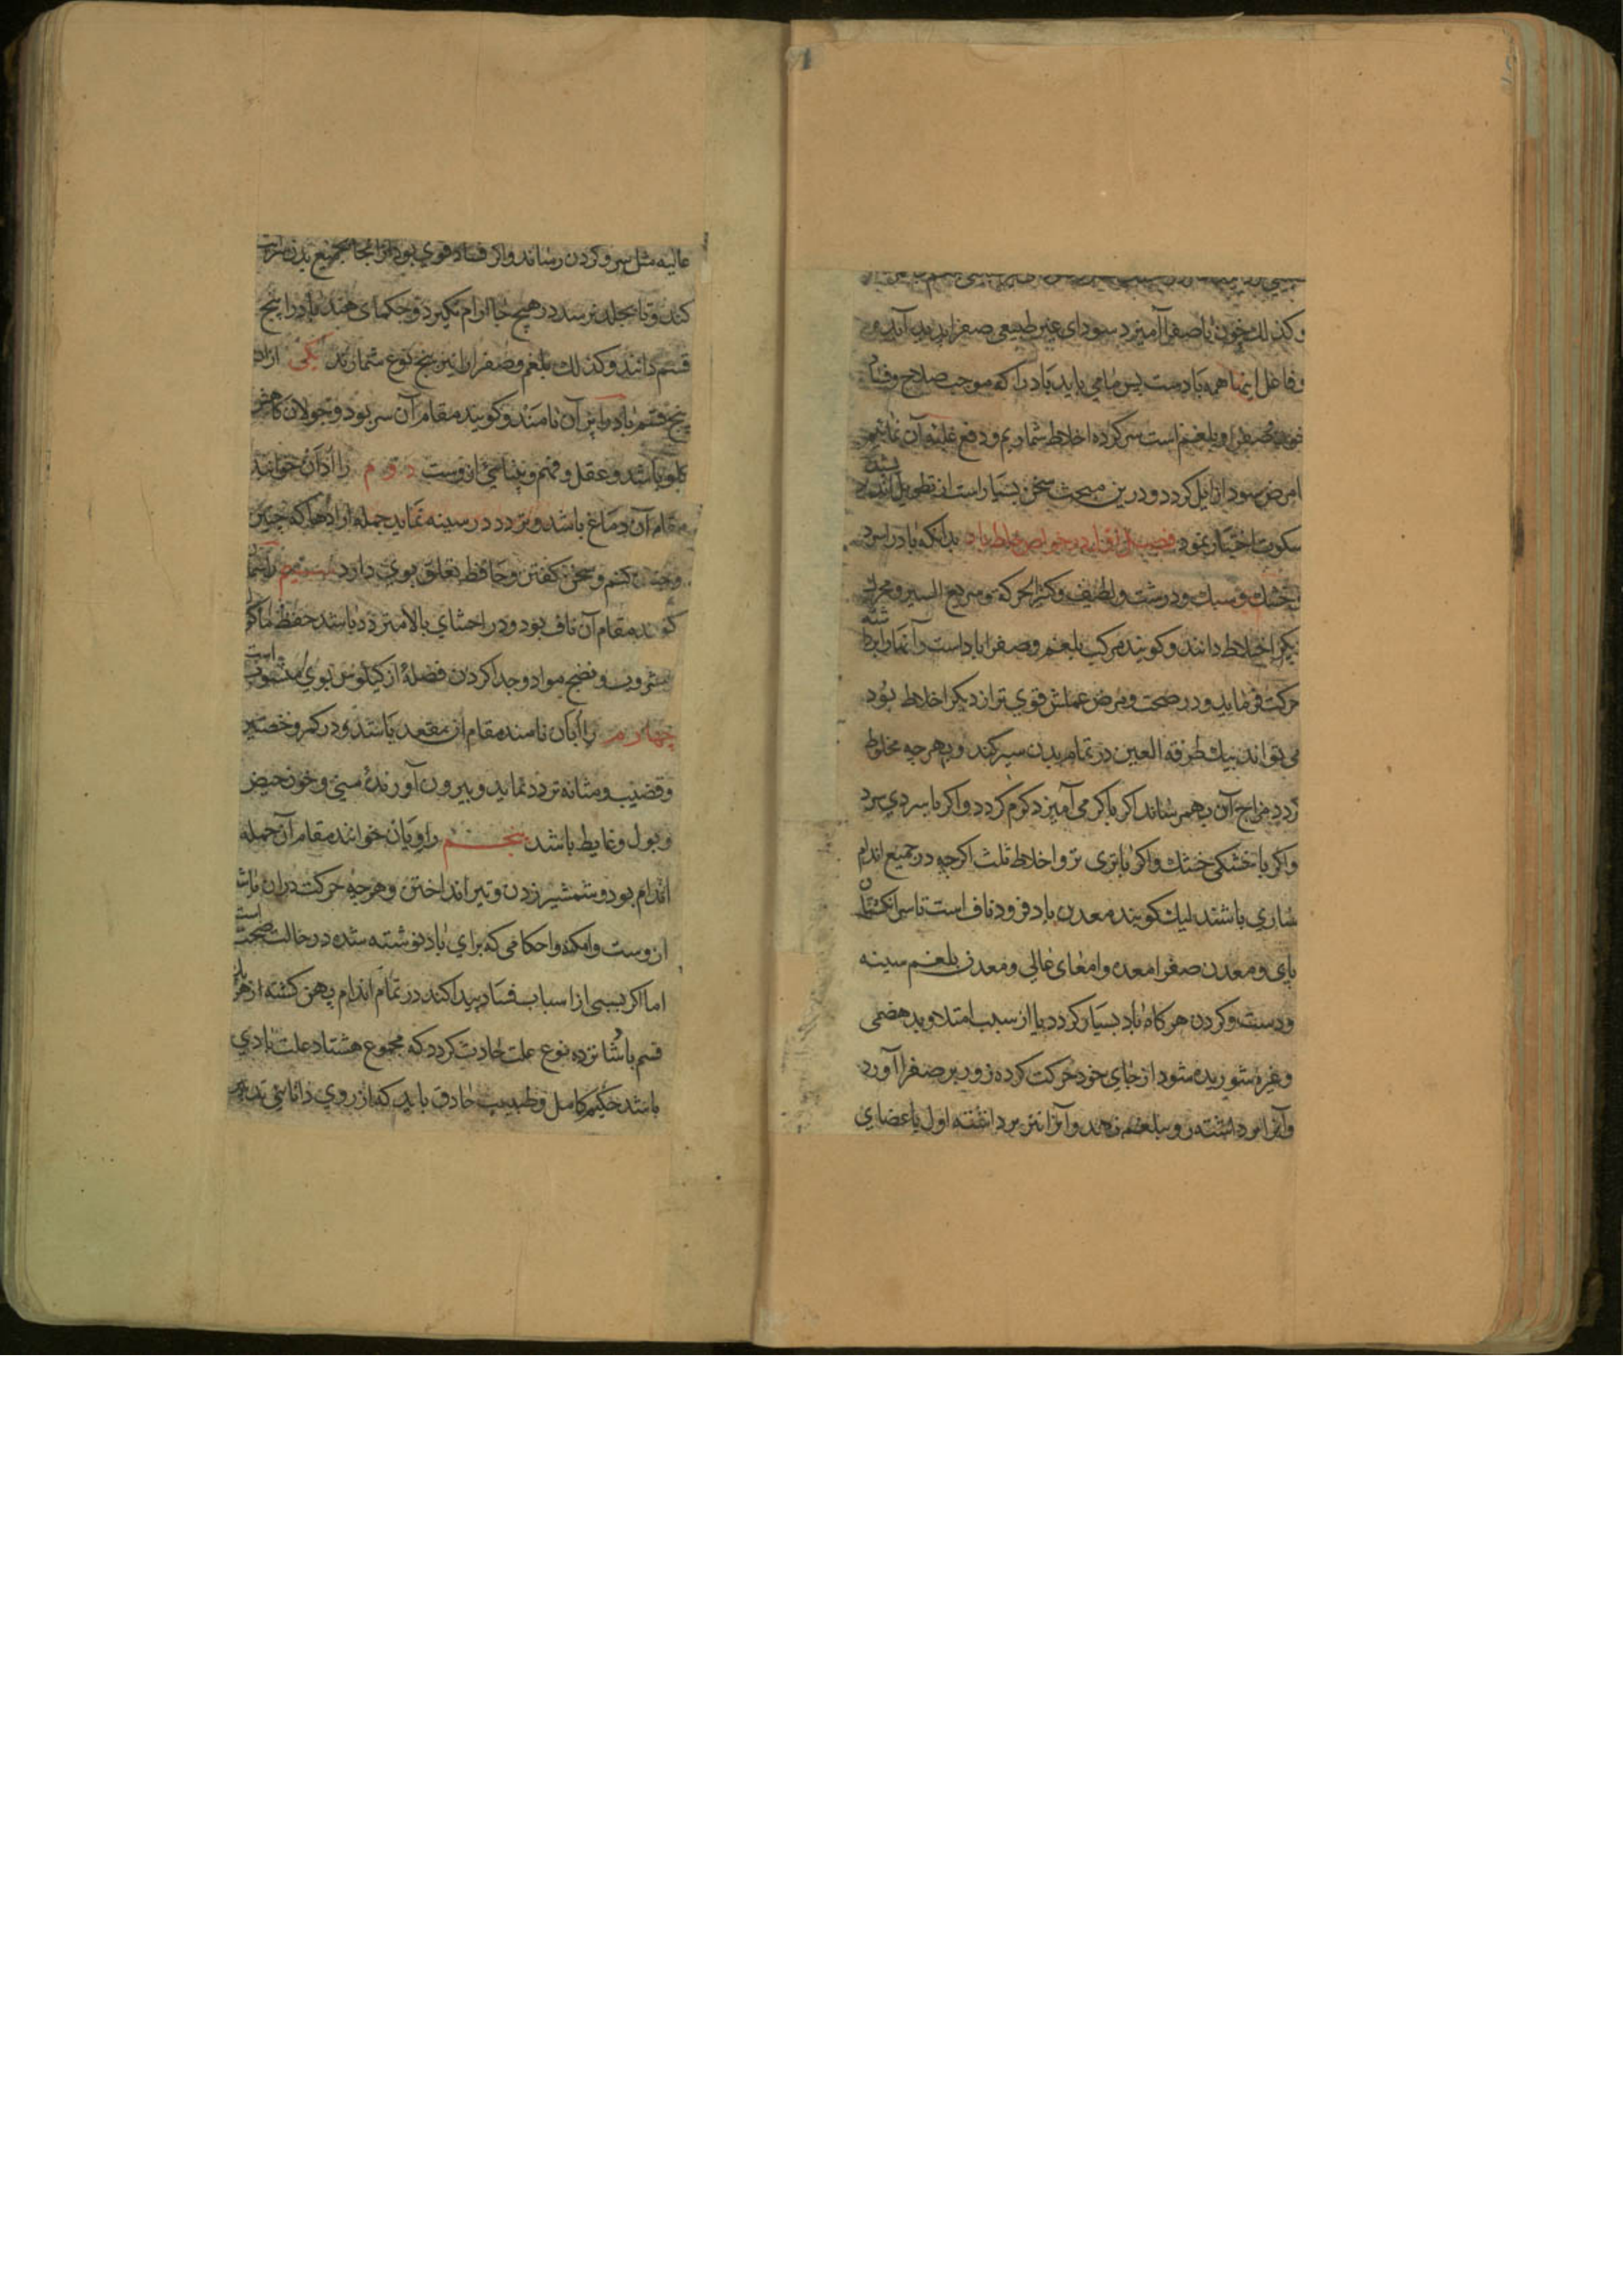 وكذلك خون با صفرا آميزد سوداى غير طبيعى صفرا پديد آيد و
و فاعل اينها همه بادست پس ما مى بايد باد را كه موجب صلاح و فساد
خون و صفرا و بلغم است سر كرده اخلاط شماريم و دفع غلبه آن نمائيم
امراض سودا زايل كردد و درين مبحث سخن بسيار است از تطويل
سكوت اختيار نمود فصل در خواص خلط باد بدانكه باد را سرد
خشك و سبك و درشت و لطيف و كثير الحركه و سريع السير و محرك
ديكر اخلاط دانند و كويند مركب بلغم و صفرا باد است و آنها را برداشته
حركت فرمايد و در صحت و مرض عملش قوي تر از ديكر اخلاط بود
مى تواند بيك طرفة العين در تمام بدن سير كند و بهر چه مخلوط
كردد مزاج آن بهم رساند اكر با كرمى آميزد كرم كردد و اكر با سردي سرد
و اكر با خشكى خشك و اكر با ترى تر و اخلاط ثلث اكرچه در جميع اندام
ساري باشند ليك كويند معدن باد فرود ناف است تا سر انكشتان
پاى و معدن صفرا معده و امعاى عالي و معدن بلغم سينه
و دست و كردن هركاه باد بسيار كردد يا از سبب امتلا و بد هضمى
و غيره شوريده شود از جاي خود حركت كرده زور بر صفرا آورد
و آنرا برداشته رو ببلغم نهد و آنرا نيز برداشته اول باعضاي
عاليه مثل سر و كردن رساند و اكر فساد قوي بود از انجا بجميع بدن سرايت
كند و تا بجلد نرسد در هيچ جا آرام نكيرد و حكماى هند باد را پنج
قسم دانند و كذلك بلغم و صفرا را نيز پنج نوع شمارند يكى از ان
پنج قسم باد را پرآن نامند و كويند مقام آن سر بود و جولان كاهش
كلو باشد و عقل و فهم و بينائي ازوست دوم را ادآن خوانند
مقام آن دماغ باشد و تردد در سينه نمايد جمله ارادها كه چنين
و چنين كنم و سخن كفتن و حافظه تعلق بوي دارد سيوم را سمان
كويند مقام آن ناف بود و در احشاي بالا متردد باشد حفظ ماكول
مشروب و نضج مواد و جدا كردن فضله از كيلوس بوي منسوب است
چهارم را اپان نامند مقام آن مقعد باشد و در كمر و خصيه
و قضيب و مثانه تردد نمايد و بيرون آورنده منى و خون حيض
و بول و غايط باشد پنجم را ويان خوانند مقام آن جمله
اندام بود و شمشير زدن و تير انداختن و هر چه حركت دران باشد
ازوست و امكنه و احكامى كه براي باد نوشته شده در حالت صحت است
اما اكر بسببى از اسباب فساد پيدا كند در تمام اندام پهن كشته از هر
قسم باد شانزده نوع علت حادث كردد كه مجموع هشتاد علت بادي
باشد حكيم كامل و طبيب حاذق بايد كه از روي دانائي تدبير